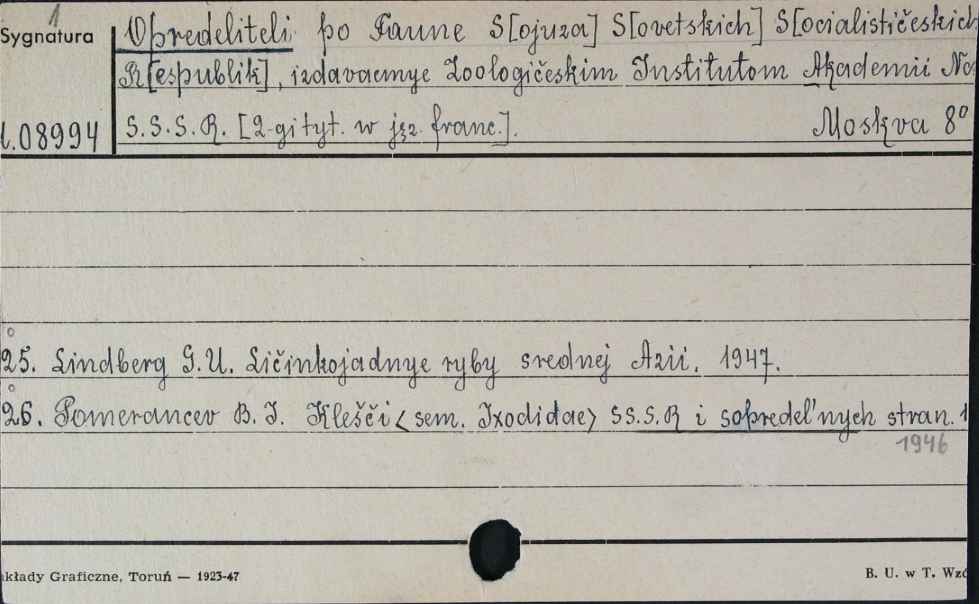 1
Sygnatura
Opredeliteli po Faune S[ojuza] S[ovetskich] S[ocialističeskich
R[espublik], izdavaemye Zoologičeskim Institutom Akademii Na
S.S.S.R. [2-gi tyt. w jęz. franc.]. Moskva 8°
08994
25. Lindberg G.U. Ličinkojadnye ryby srednej Azii. 1947.
26. Pomerancev B.I. Klešči <sem. Ixodidae> SS.S.R i sopredel'nych stran. 1
1946
kłady Graficzne, Toruń — 1923-47
B. U. w T. Wzó